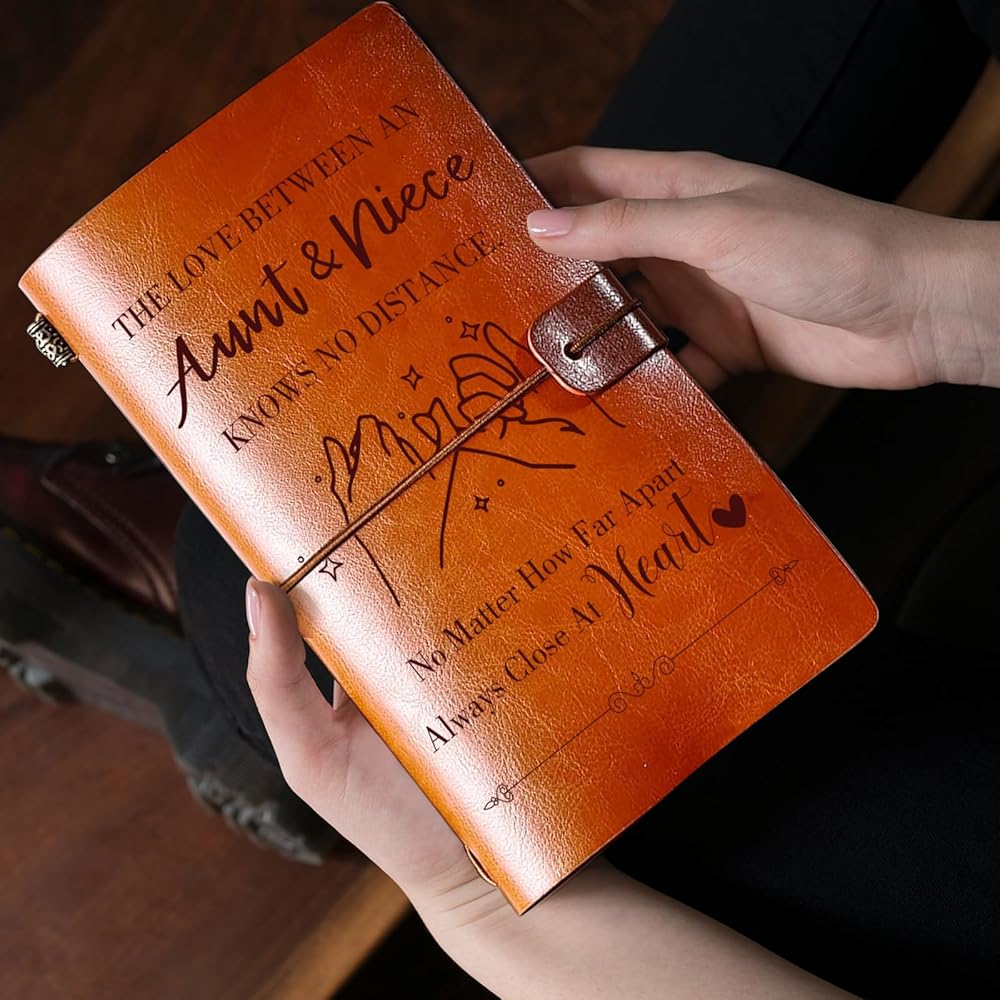 THE LOVE BETWEEN AN
Aunt & Niece
KNOWS NO DISTANCE..
No Matter How Far Apart
Always Close At Heart